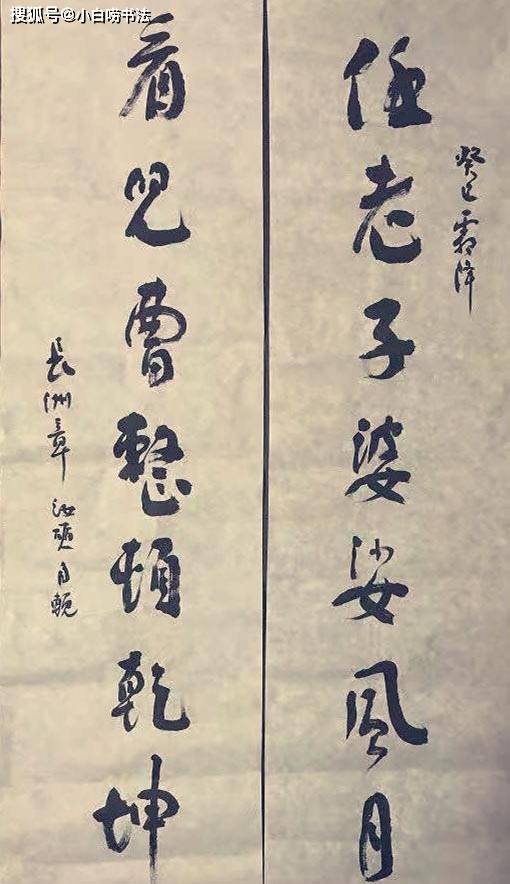 搜狐号@小白唠书法
癸巳霜降
任老子婆娑風月
看兒曹整頓乾坤
長洲章汝奭自輓